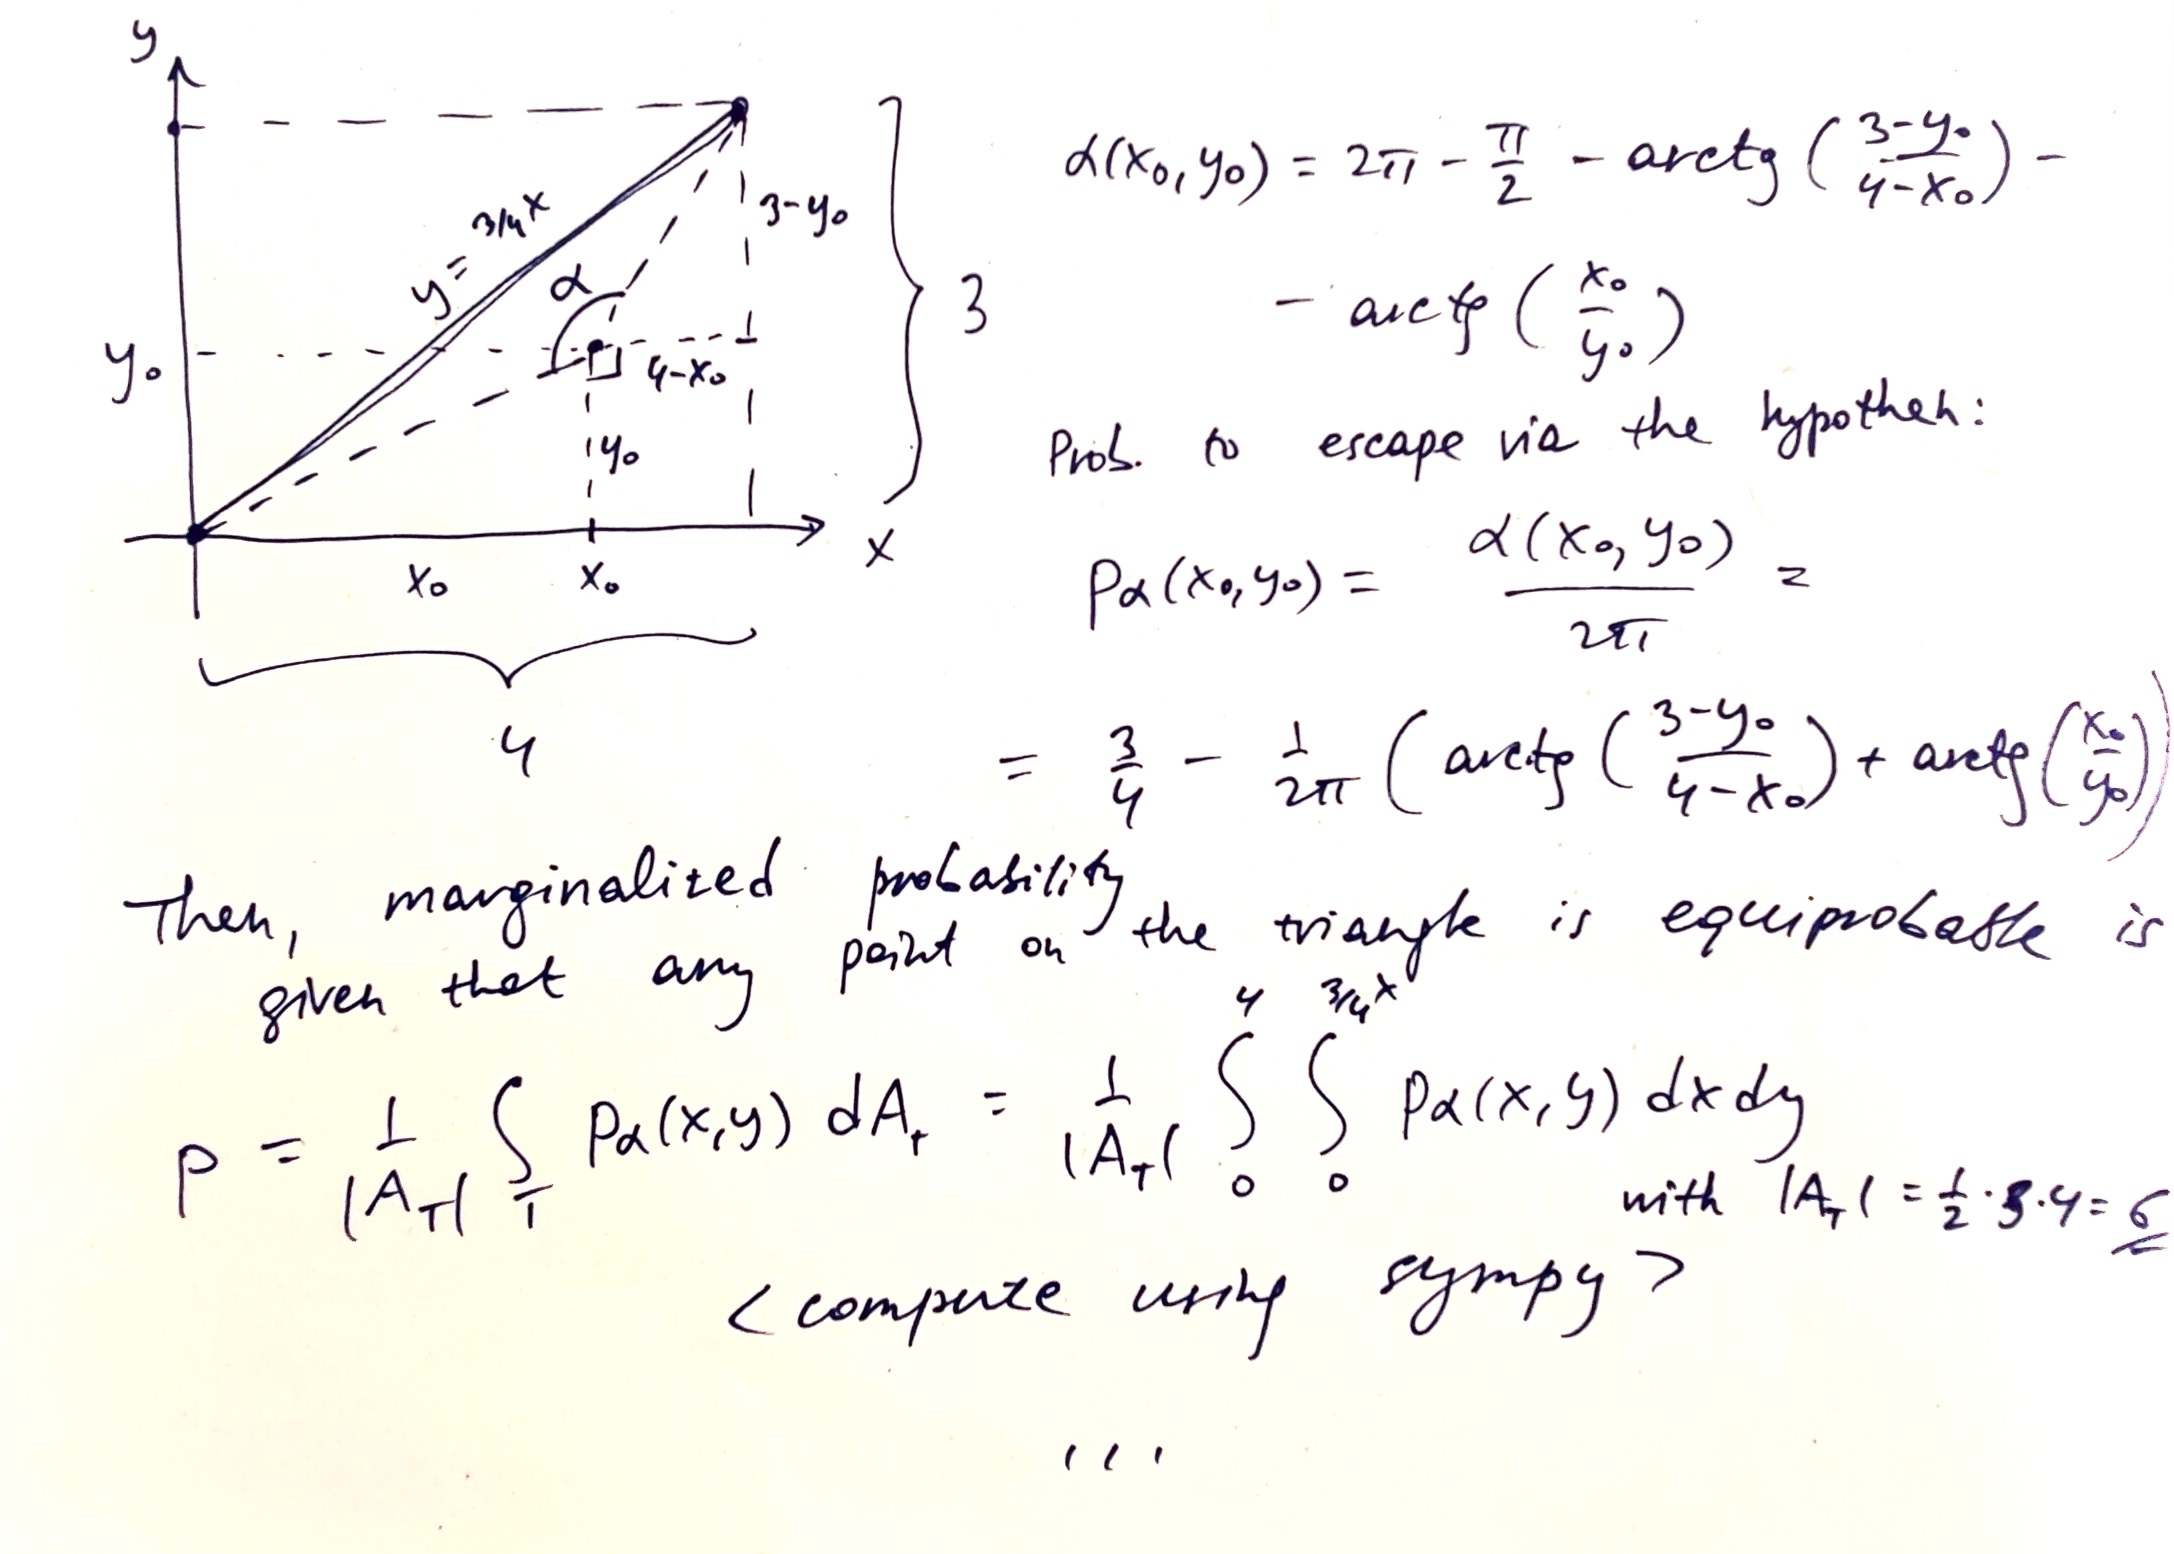 y
y = 3/4 x
α
3-y₀
3
y₀
4-x₀
y₀
x
x₀ x₀
4
α(x₀, y₀) = 2π - π/2 - arctg ( (3-y₀)/(4-x₀) ) -
- arctg ( x₀/y₀ )
Prob. to escape via the hypothen:
pα(x₀, y₀) = α(x₀, y₀)/2π =
= 3/4 - 1/2π ( arctg ( (3-y₀)/(4-x₀) ) + arctg ( x₀/y₀ ) )
Then, marginalized probability
given that any point on the triangle is equiprobable is
p = 1/|A_T| ∫_T pα(x,y) dA_T = 1/|A_T| ∫_0^4 ∫_0^{3/4 x} pα(x,y) dx dy
with |A_T| = 1/2 · 3 · 4 = 6
< compute using sympy >
...